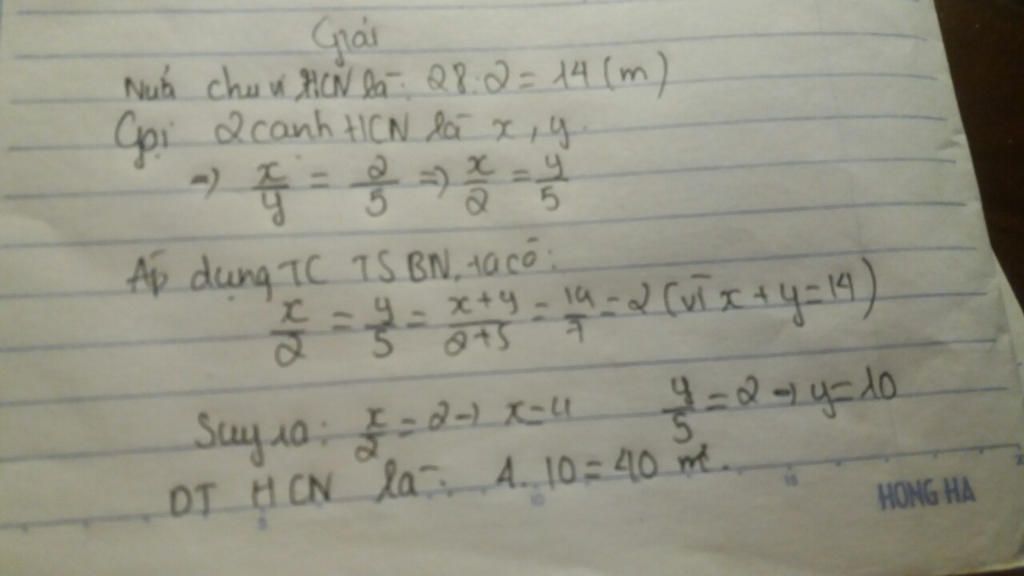 Giải
Nửa chu vi HCN là: 28:2 = 14 (m)
Gọi 2 cạnh HCN là x, y.
=> x/y = 2/5 => x/2 = y/5
Áp dụng TC TSBN, ta có:
x/2 = y/5 = x+y/2+5 = 14/7 = 2 (vì x + y = 14)
Suy ra: x/2 = 2 → x = 4 y/5 = 2 → y = 10
DT HCN là: 4.10 = 40 m².
5 10 15
HONG HA